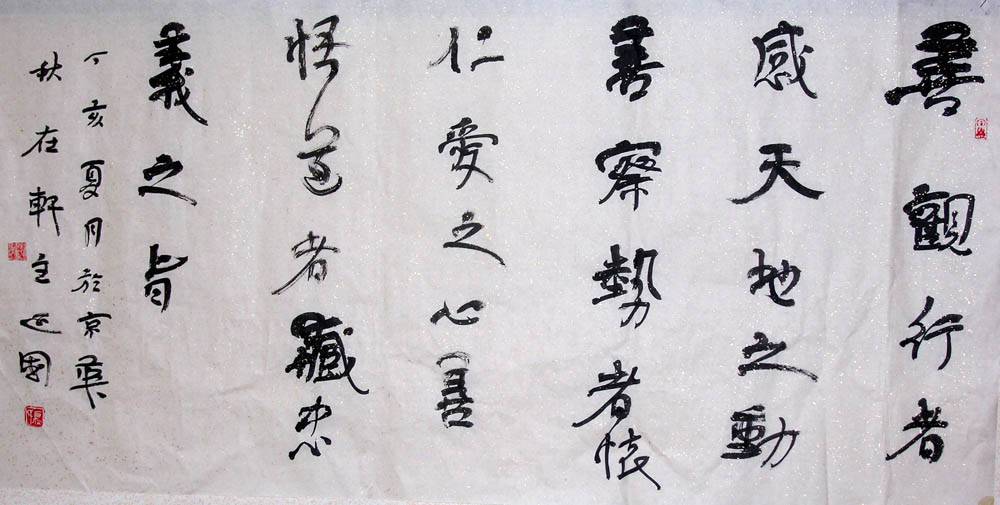 善觀行者
感天地之動
善察勢者懷
仁愛之心善
悟道者藏忠
義之旨
丁亥夏月於京
秋在軒主